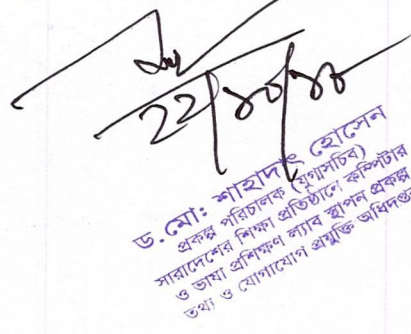 ড. মো: শাহাদাৎ হোসেন
প্রকল্প পরিচালক (যুগ্মসচিব)
সারাদেশের শিক্ষা প্রতিষ্ঠানে কম্পিউটার
ও ভাষা প্রশিক্ষণ ল্যাব স্থাপন প্রকল্প
তথ্য ও যোগাযোগ প্রযুক্তি